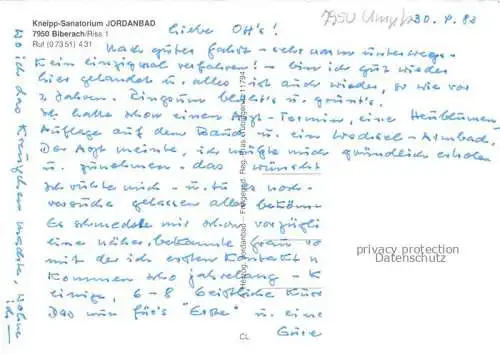 Kneipp-Sanatorium JORDANBAD
7950 Biberach/Riss 1
Ruf (0 73 51) 4 31
30. 9. 83
Liebe Ott's!
Nach guter Fahrt - sehr warm unterwegs -
Kein einziges mal verfahren! - bin ich gut wieder
hier gelandet u. alles ist auch wieder, so wie vor
2 Jahren. Ringsum blüht's u. grünt's.
Ich hatte schon einen Arzt-Termin, eine Heublumen
Auflage auf dem Bauch u. ein Wechsel-Armbad.
Der Arzt meinte, ich müßte mich gründlich erholen
u. zunehmen - das wünscht
Ich richte mich - u. tu es noch -
versuche gelassen alles
Es schmeckte mir schon vorzügli
eine näher bekannte Frau
mit der ich ersten Kontakt
kommen schon jahrelang - K
einige, 6 - 8 Geistliche Kur
Das nun für's "Erste" u. eine
Eure
Wo ich das Kreuzchen machte, wohne
ich -
A. Herzog, Jordanbad - Freigegeb. Reg. Präs.
CL
privacy protection
Datenschutz